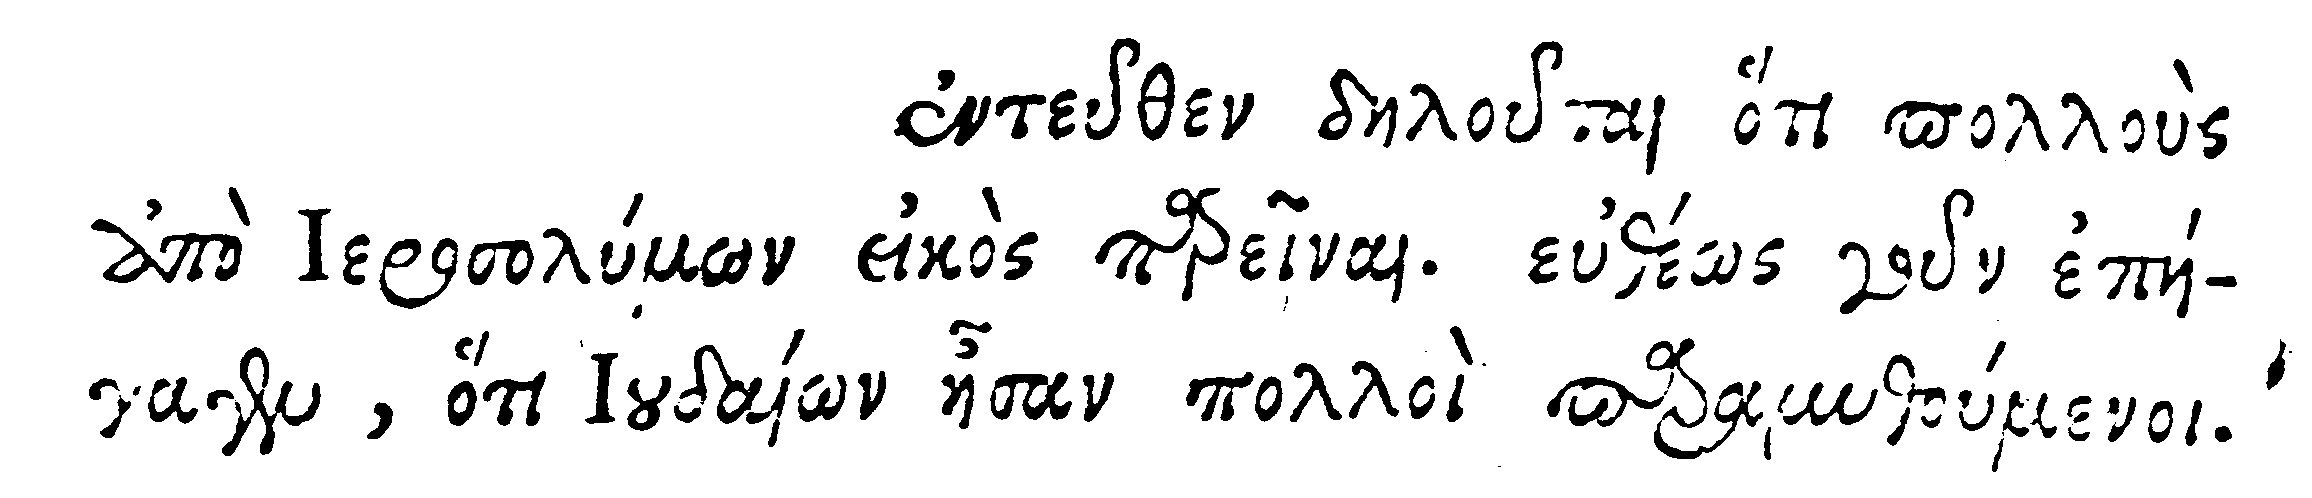 ἐντεῦθεν δηλοῦται ὅτι πολλοὺς
ἀπὸ Ιεροσολύμων εἰκὸς παρεῖναι. εὐθέως γοῦν ἐπή-
γαγεν, ὅτι Ιουδαίων ἦσαν πολλοὶ παραμυθούμενοι.